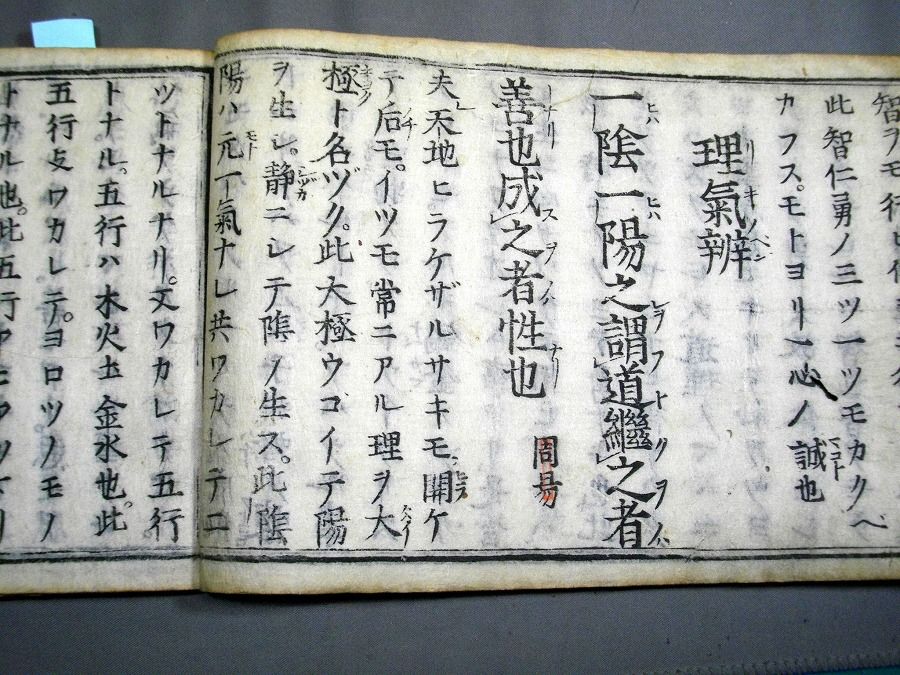 智ヲモ行
此智仁勇ノ三ツ一ツモカクベ
カフス。モトヨリ一心ノ誠也
理氣辨
一陰一陽之謂道繼之者
善也成之者性也 周易
夫天地ヒラケザルサキモ、開ケ
テ后モ。イツモ常ニアル理ヲ大
極ト名ヅク。此大極ウゴイテ陽
ヲ生し。静ニレテ陰ノ生ス。此陰
陽ハ元一氣ナレ共ワカレテ二
ツトナルナリ。又ワカレテ五行
トナル。五行ハ木火土金水也。此
五行攴ワカレテ。ヨロツノモノ
トナル也。此五行